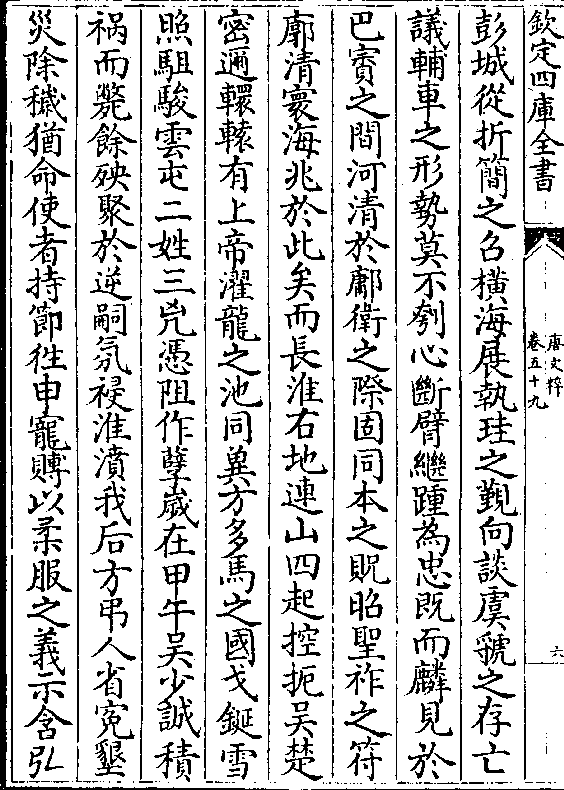 欽定四庫全書
唐文粹
卷五十九
六
彭城從折簡之召橫海展執珪之覲向談虞虢之存亡
議輔車之形勢莫不刳心斷臂繼踵為忠既而麟見於
巴賨之間河清於鄘衛之際固同本之貺昭聖祚之符
廓清寰海兆於此矣而長淮右地連山四起控扼吳楚
密邇轘轅有上帝濯龍之池同冀方多馬之國戈鋋雪
照駔駿雲屯二姓三兇憑阻作孽歲在甲午吳少誠積
禍而斃餘殃聚於逆嗣氛祲淮濆我后方弔人省寃墾
災除穢猶命使者持節徃申寵賻以柔服之義示含弘